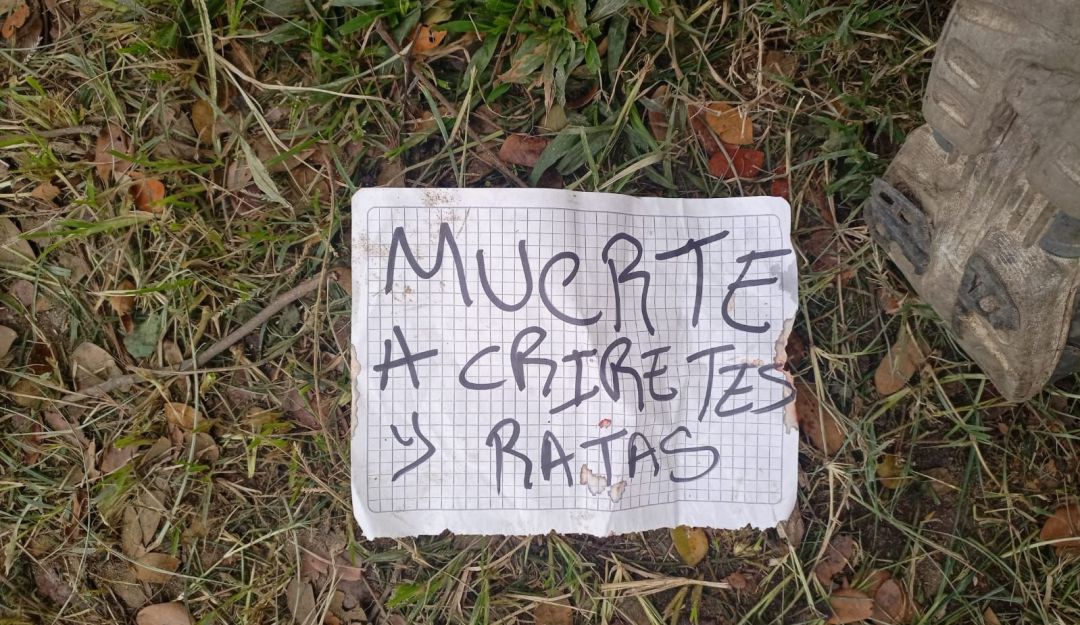 MUERTE
A CRIRETES
Y RATAS